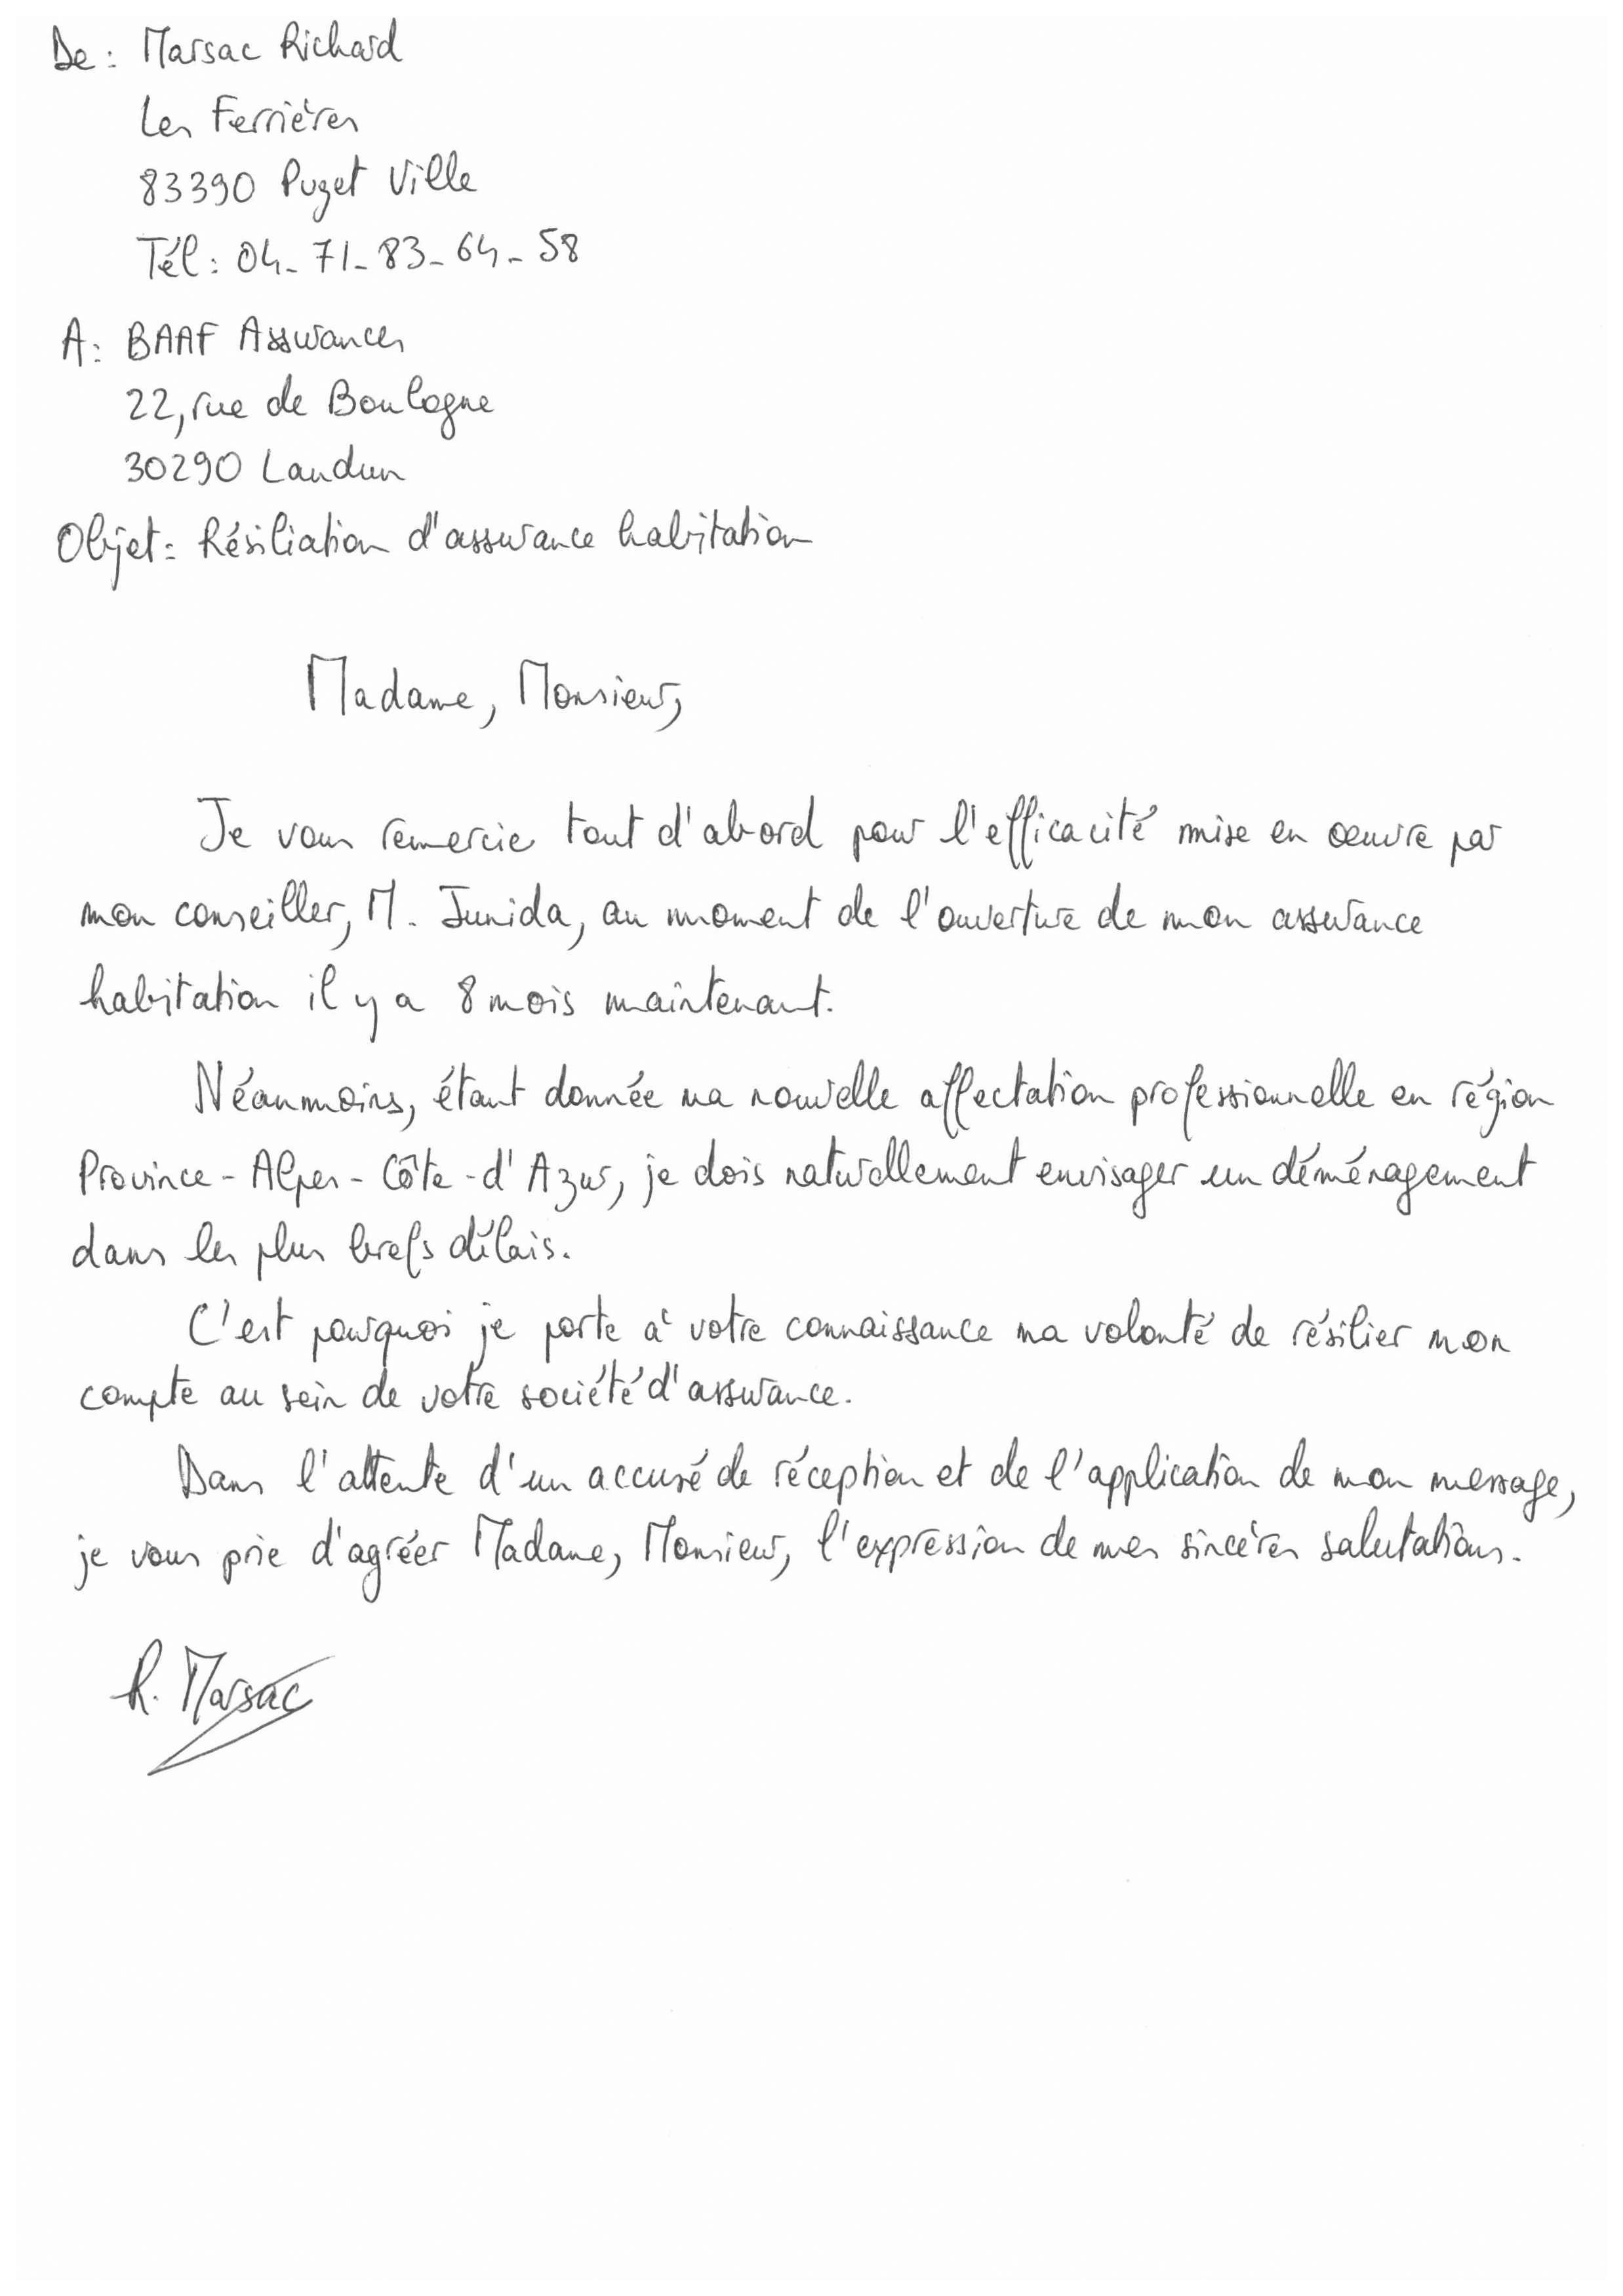 De : Marsac Richard
Les Ferrières
83390 Puget Ville
Tél : 04-71-83-64-58
A : BAAF Assurances
22, rue de Boulogne
30290 Laudun
Objet : Résiliation d'assurance habitation
Madame, Monsieur,
Je vous remercie tout d'abord pour l'efficacité mise en oeuvre par
mon conseiller, M. Junida, au moment de l'ouverture de mon assurance
habitation il y a 8 mois maintenant.
Néanmoins, étant donnée ma nouvelle affectation professionnelle en région
Province-Alpes-Côte-d'Azur, je dois naturellement envisager un déménagement
dans les plus brefs délais.
C'est pourquoi je porte à votre connaissance ma volonté de résilier mon
compte au sein de votre société d'assurance.
Dans l'attente d'un accusé de réception et de l'application de mon message,
je vous prie d'agréer Madame, Monsieur, l'expression de mes sincères salutations.
R. Marsac